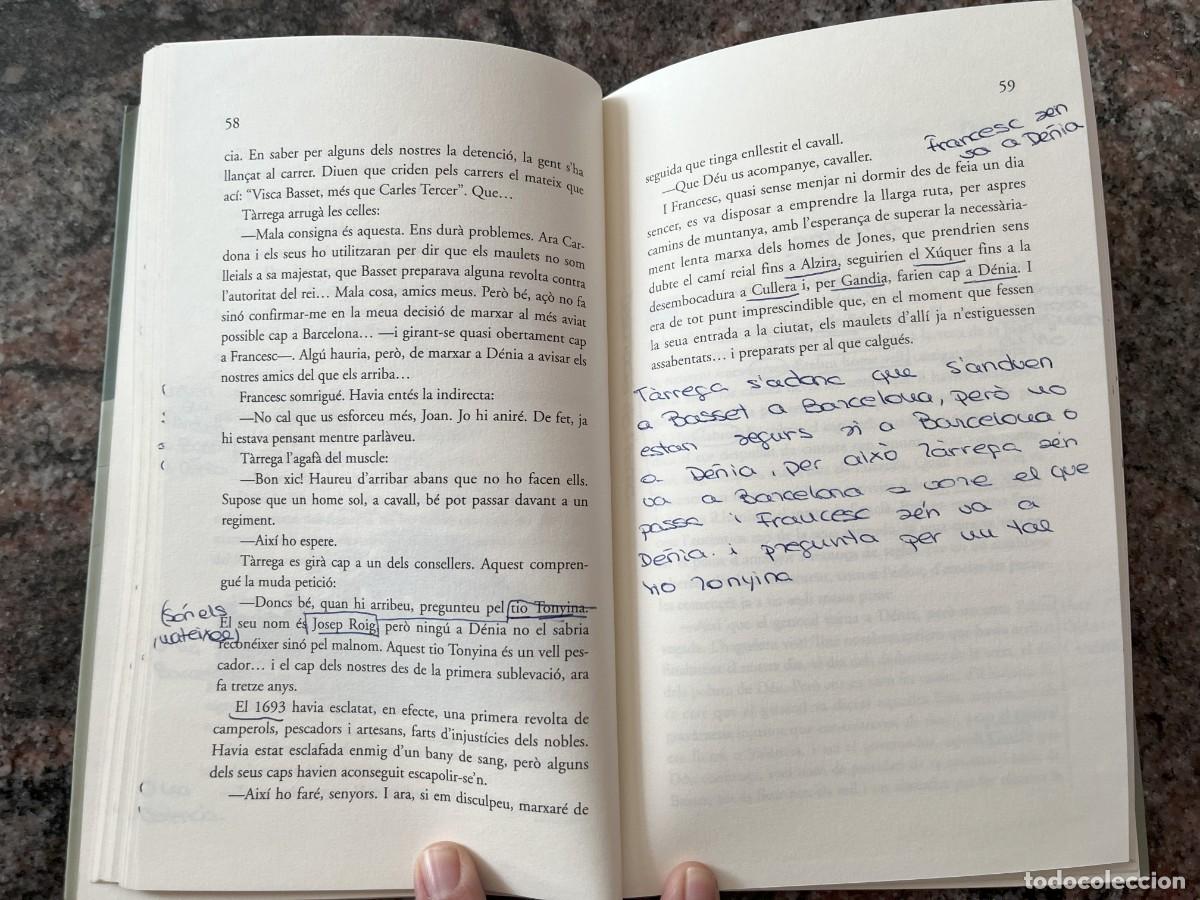 58
cia. En saber per alguns dels nostres la detenció, la gent s'ha
llançat al carrer. Diuen que criden pels carrers el mateix que
ací: “Visca Basset, més que Carles Tercer”. Que…
Tàrrega arrugà les celles:
—Mala consigna és aquesta. Ens durà problemes. Ara Car-
dona i els seus ho utilitzaran per dir que els maulets no som
lleials a sa majestat, que Basset preparava alguna revolta contra
l'autoritat del rei… Mala cosa, amics meus. Però bé, açò no fa
sinó confirmar-me en la meua decisió de marxar al més aviat
possible cap a Barcelona… —i girant-se quasi obertament cap
a Francesc—. Algú hauria, però, de marxar a Dénia a avisar els
nostres amics del que els arriba…
Francesc somrigué. Havia entés la indirecta:
—No cal que us esforceu més, Joan. Jo hi aniré. De fet, ja
hi estava pensant mentre parlàveu.
Tàrrega l'agafà del muscle:
—Bon xic! Haureu d'arribar abans que no ho facen ells.
Supose que un home sol, a cavall, bé pot passar davant a un
regiment.
—Així ho espere.
Tàrrega es girà cap a un dels consellers. Aquest compren-
gué la muda petició:
—Doncs bé, quan hi arribeu, pregunteu pel tio Tonyina.
El seu nom és Josep Roig, però ningú a Dénia no el sabria
reconéixer sinó pel malnom. Aquest tio Tonyina és un vell pes-
cador… i el cap dels nostres des de la primera sublevació, ara
fa tretze anys.
El 1693 havia esclatat, en efecte, una primera revolta de
camperols, pescadors i artesans, farts d'injustícies dels nobles.
Havia estat esclafada enmig d'un bany de sang, però alguns
dels seus caps havien aconseguit escapolir-se'n.
—Així ho faré, senyors. I ara, si em disculpeu, marxaré de
(són els
mateixos)
59
Francesc sén
va a Dénia
seguida que tinga enllestit el cavall.
—Que Déu us acompanye, cavaller.
I Francesc, quasi sense menjar ni dormir des de feia un dia
sencer, es va disposar a emprendre la llarga ruta, per aspres
camins de muntanya, amb l'esperança de superar la necessària-
ment lenta marxa dels homes de Jones, que prendrien sens
dubte el camí reial fins a Alzira, seguirien el Xúquer fins a la
desembocadura a Cullera i, per Gandia, farien cap a Dénia. I
era de tot punt imprescindible que, en el moment que fessen
la seua entrada a la ciutat, els maulets d'allí ja n'estiguessen
assabentats… i preparats per al que calgués.
Tàrrega s'adona que s'anduen
a Basset a Barcelona, però no
estan segurs si a Barcelona o
a Dénia, per això Tàrrega sén
va a Barcelona a vore el que
passa i Francesc sén va a
Dénia. i pregunta per un tal
tio Tonyina
todocoleccion